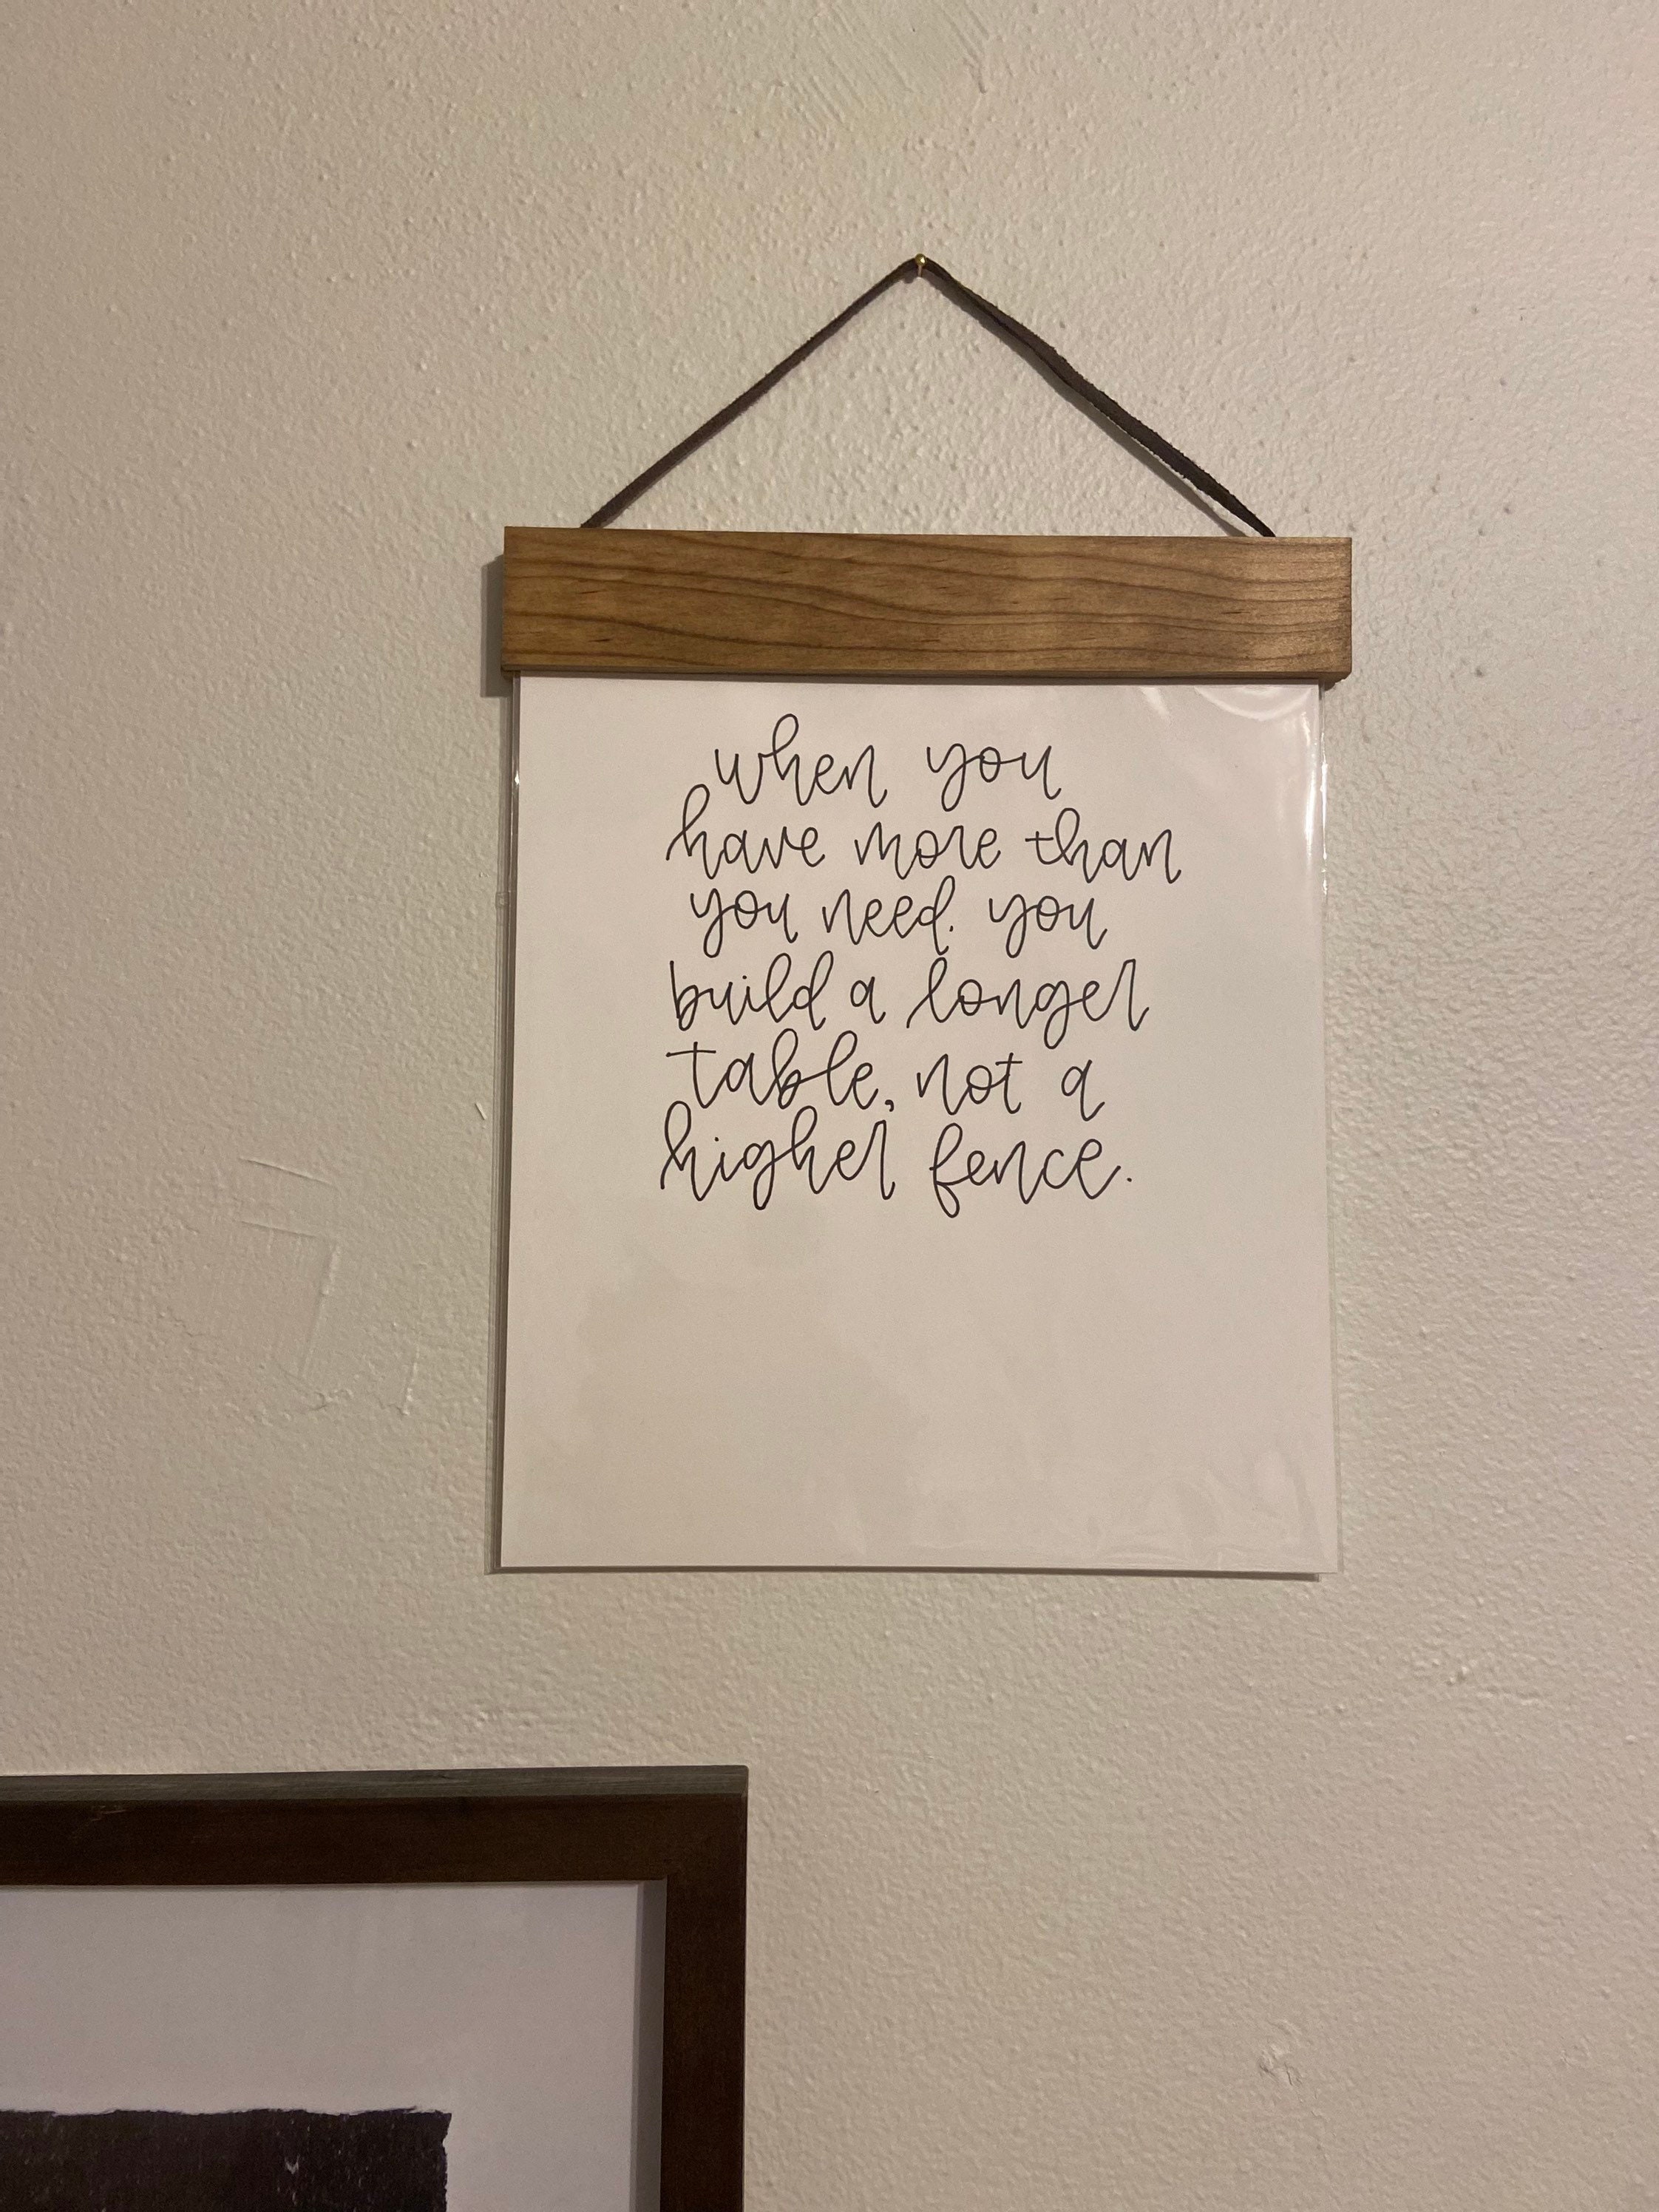 when you
have more than
you need. you
build a longer
table, not a
higher fence.